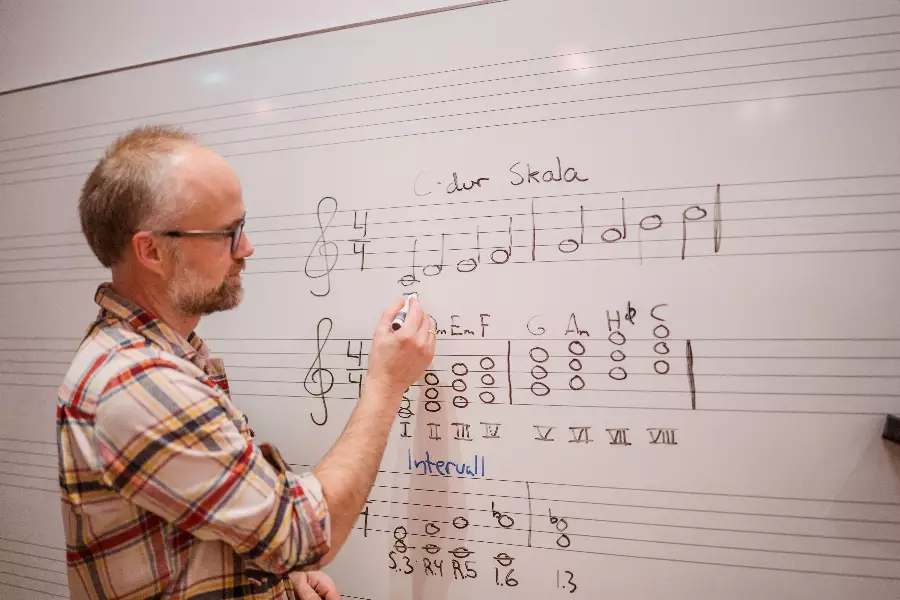 C-dur Skala
4
4
4
4
m Em F G Am H C
I II III IV V VI VII VIII
Intervall
S.3 R.4 R.5 1.6 1.3